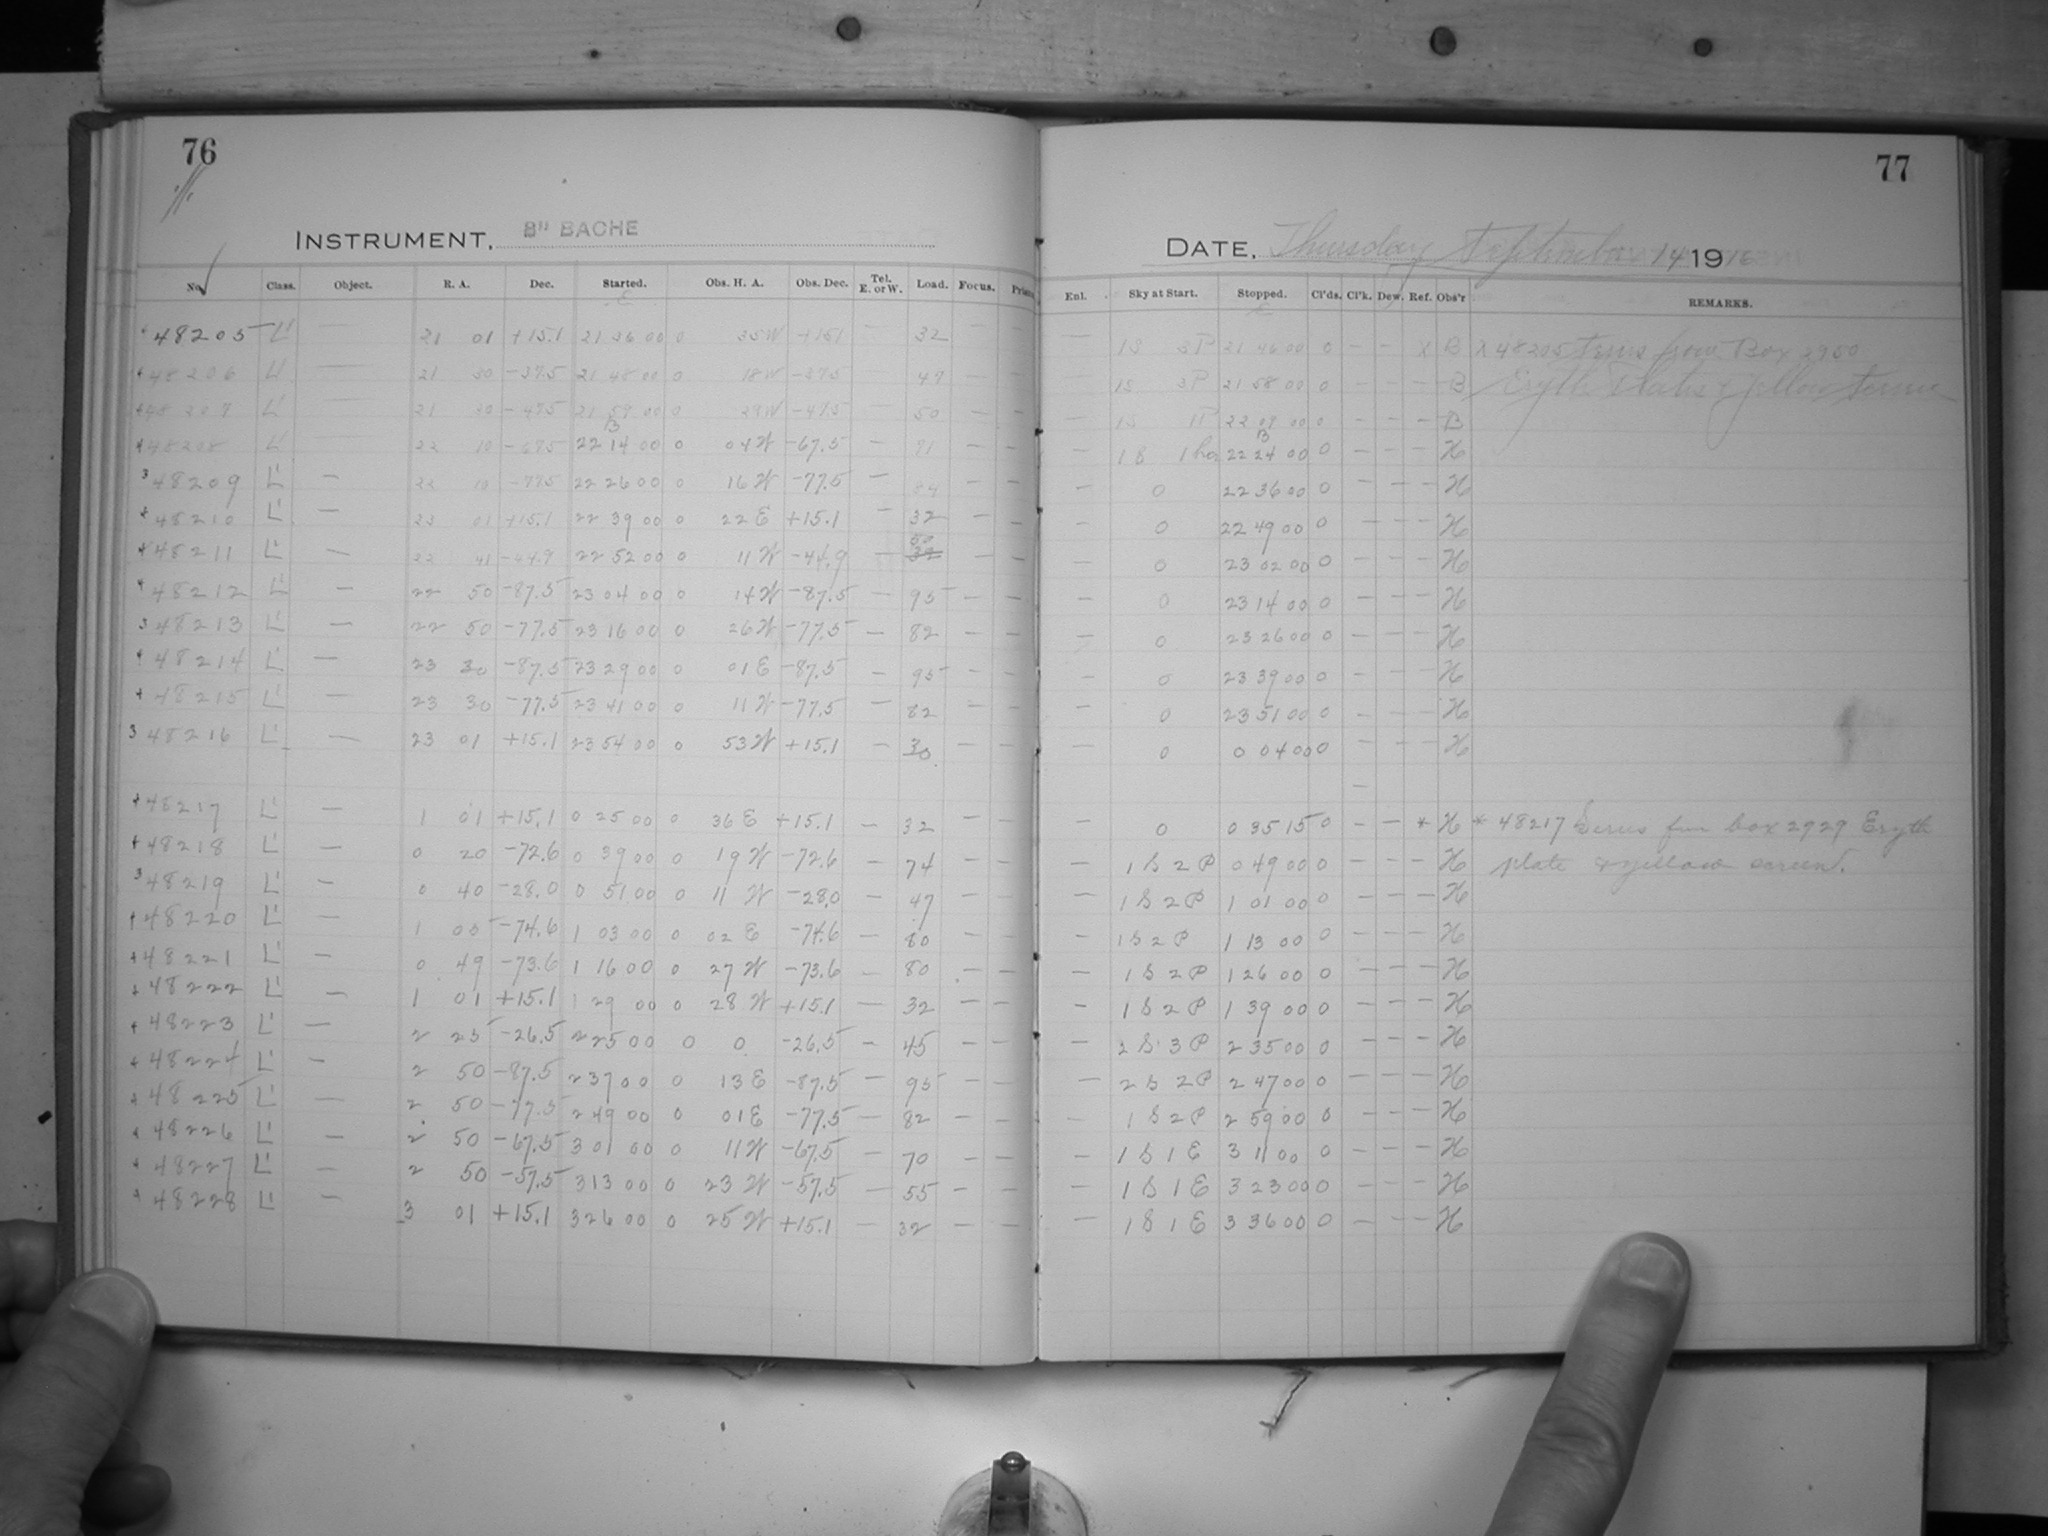 76
INSTRUMENT, 8" BACHE
No. Class. Object. R. A. Dec. Started. Obs. H. A. Obs. Dec. Tel. E. or W. Load. Focus. Prism
48205 L' — 21 01 +15.1 21 36 00 0 35 W +151 32 — —
48206 L' — 21 30 -37.5 21 48 00 0 18 W -37.5 — 47 — —
48207 L' — 21 30 -47.5 21 59 00 0 29 W -47.5 — 50 — —
48208 L' — 22 10 -67.5 22 14 00 0 04 W -67.5 — 71 — —
3 48209 L' — 22 10 -77.5 22 26 00 0 16 W -77.5 — 84 — —
48210 L' — 23 01 +15.1 22 39 00 0 22 E +15.1 — 32 — —
48211 L' — 22 41 -44.9 22 52 00 0 11 W -44.9 — 50 — —
48212 L' — 22 50 -87.5 23 04 00 0 14 W -87.5 — 95 — —
3 48213 L' — 22 50 -77.5 23 16 00 0 26 W -77.5 — 82 — —
48214 L' — 23 30 -87.5 23 29 00 0 01 E -87.5 — 95 — —
48215 L' — 23 30 -77.5 23 41 00 0 11 W -77.5 — 82 — —
3 48216 L' — 23 01 +15.1 23 54 00 0 53 W +15.1 — 30 — —
48217 L' — 1 01 +15.1 0 25 00 0 36 E +15.1 — 32 — —
48218 L' — 0 20 -72.6 0 39 00 0 19 W -72.6 — 74 — —
3 48219 L' — 0 40 -28.0 0 51 00 0 11 W -28.0 — 47 — —
48220 L' — 1 05 -74.6 1 03 00 0 02 E -74.6 — 80 — —
48221 L' — 0 49 -73.6 1 16 00 0 27 W -73.6 — 80 — —
48222 L' — 1 01 +15.1 1 29 00 0 28 W +15.1 — 32 — —
48223 L' — 2 25 -26.5 2 25 00 0 0 -26.5 — 45 — —
48224 L' — 2 50 -87.5 2 37 00 0 13 E -87.5 — 95 — —
48225 L' — 2 50 -77.5 2 49 00 0 01 E -77.5 — 82 — —
48226 L' — 2 50 -67.5 3 01 00 0 11 W -67.5 — 70 — —
48227 L' — 2 50 -57.5 3 13 00 0 23 W -57.5 — 55 — —
48228 L' — 3 01 +15.1 3 26 00 0 25 W +15.1 — 32 — —
77
DATE, Thursday September 14 1916
Enl. Sky at Start. Stopped. Cl'ds. Cl'k. Dew. Ref. Obs'r REMARKS.
— 1S 3P 21 46 00 0 — — X B X 48205 from Box 2950
— 1S 3P 21 58 00 0 — — — B Eryth Plates & yellow
— 1S 1P 22 09 00 0 — — — B
— 1S 1 22 24 00 0 — — — H
— 0 22 36 00 0 — — — H
— 0 22 49 00 0 — — — H
— 0 23 02 00 0 — — — H
— 0 23 14 00 0 — — — H
— 0 23 26 00 0 — — — H
— 0 23 39 00 0 — — — H
— 0 23 51 00 0 — — — H
— 0 0 04 00 0 — — — H
— 0 0 35 15 0 — — * H * 48217 box 2929 Eryth
— 1S 2P 0 49 00 0 — — — H plate & yellow screen.
— 1S 2P 1 01 00 0 — — — H
— 1S 2P 1 13 00 0 — — — H
— 1S 2P 1 26 00 0 — — — H
— 1S 2P 1 39 00 0 — — — H
— 2S 3P 2 35 00 0 — — — H
— 2S 2P 2 47 00 0 — — — H
— 1S 2P 2 59 00 0 — — — H
— 1S 1E 3 11 00 0 — — — H
— 1S 1E 3 23 00 0 — — — H
— 1S 1E 3 36 00 0 — — — H